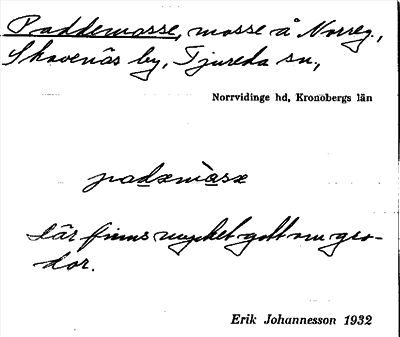 Paddemosse, mosse å Norreg.,
Skavenäs by, Tjureda sn.,
Norrvidinge hd, Kronobergs län
padxmòsx
där finns mycket gott om gro-
dor.
Erik Johannesson 1932